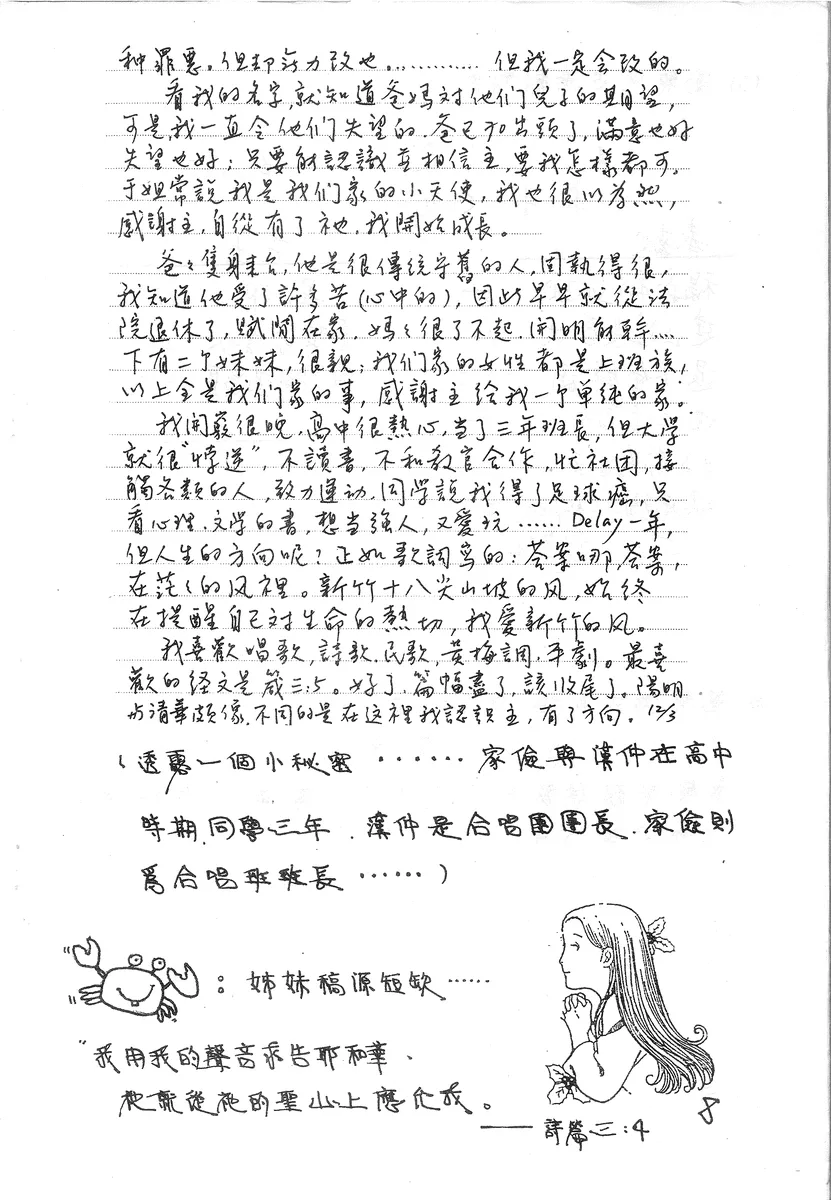 种罪惡。但却无力改也............但我一定会改的。
看我的名字,就知道爸媽对他们兒子的期望,
可是,我一直令他们失望的.爸已知出頭了,滿意也好
失望也好;只要能認識並相信主,要我怎樣都可。
于姐常說我是我们家的小天使,我也很以為然,
感謝主,自從有了祂,我開始成長。
爸々隻身來台,他是很傳統守舊的人,固執得很,
我知道他受了許多苦(心中的),因此早早就從法
院退休了,賦閒在家.媽々很了不起.開明能幹....
下有二个妹妹,很親;我们家的女性都是上班族,
以上全是我们家的事,感謝主給我一个单純的家。
我開竅很晚.高中很熱心,当了三年班長,但大学
就很"悖逆",不讀書,不和教官合作,忙社团,接
觸各類的人,致力運动.同学說我得了足球癌,只
看心理.文学的書,想当強人,又爱玩......Delay一年,
但人生的方向呢?正如歌詞寫的:荅案哪,荅案,
在茫々的风裡。新竹十八尖山坡的风,始終
在提醒自己对生命的熱切,我爱新竹的风。
我喜歡唱歌,詩歌.民歌,黃梅調.平劇。最喜
歡的经文是箴三:5。好了.篇幅盡了,該收尾了。陽明
与清華頗像.不同的是在这裡我認識主,有了方向。12/3
(透露一個小秘密......家儉與漢仲在高中
時期.同學三年.漢仲是合唱團團長.家儉則
為合唱班班長......)
:姊妹稿源短缺......
"我用我的聲音求告耶和華、
祂就從祂的聖山上應允我。
——詩篇三:4
8